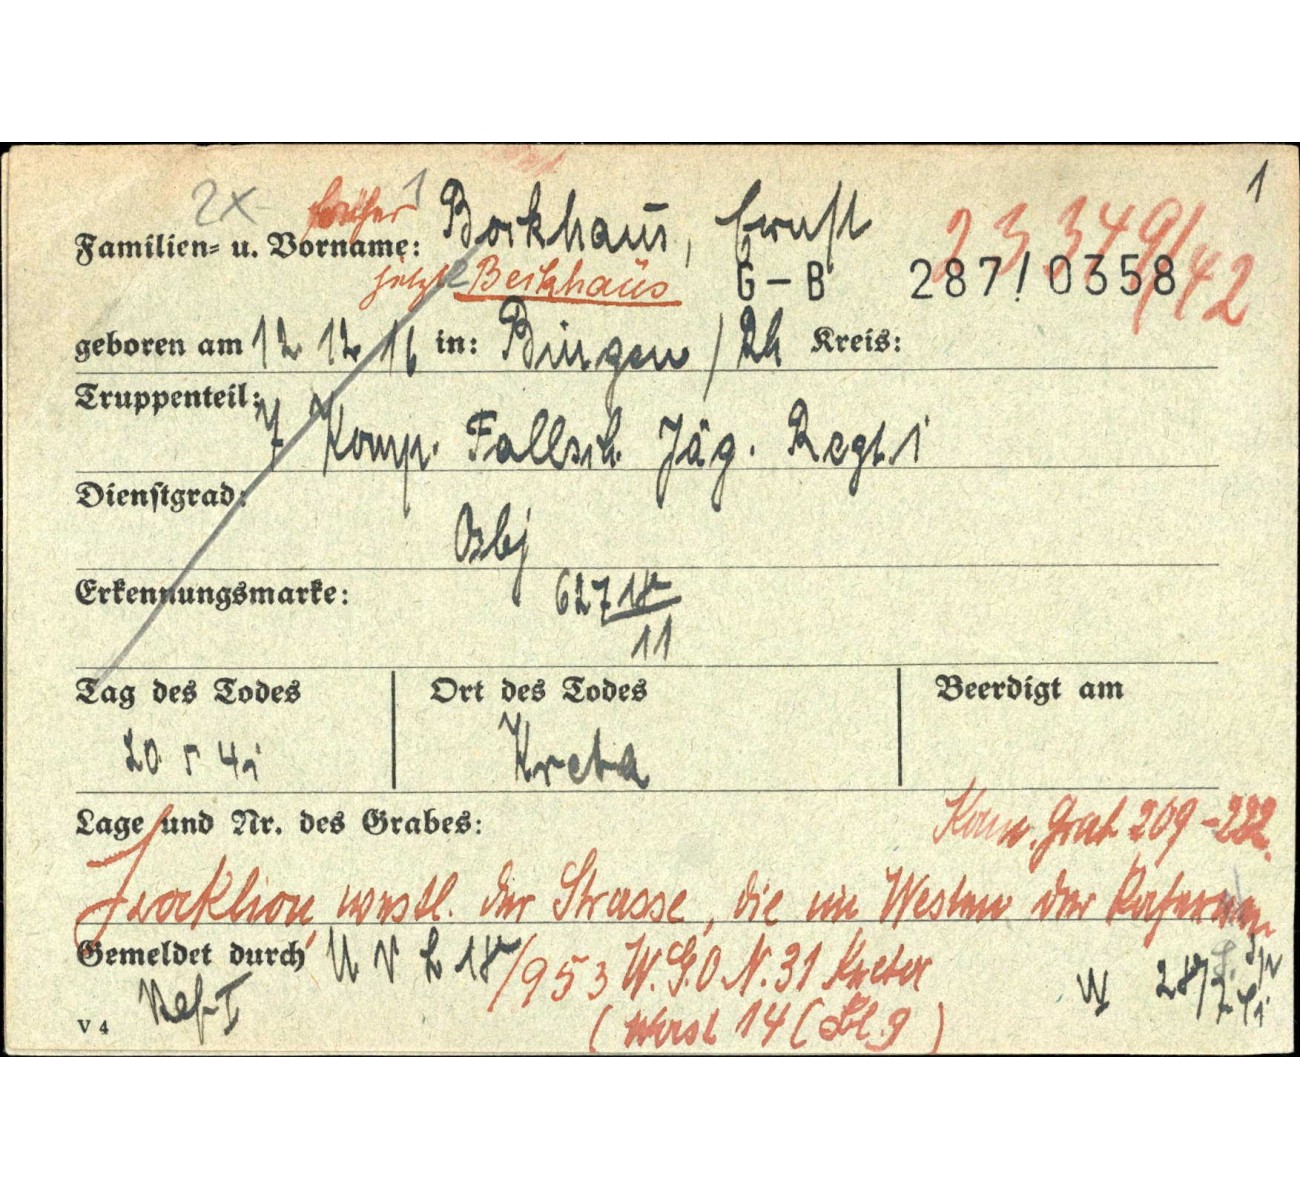 2x früher 1 1
Familien- u. Vorname: Borkhaus, Ernst 23349/42
jetzt Berkhaus G-B 287/0358
geboren am 12 12 16 in: Bingen / Rh Kreis:
Truppenteil: 7 Komp. Fallsch. Jäg. Regt. 1
Dienstgrad: Obj
Erkennungsmarke: 62718/11
Tag des Todes Ort des Todes Beerdigt am
20 5 41 Kreta
Lage und Nr. des Grabes: Kam. Grab 209-222.
Iraklion, westl. der Strasse, die im Westen der Kasernen
Gemeldet durch U V L 18/953 W.G.O. N. 31 Kreta
Ref. I (14 (Bl. 9)
V 4